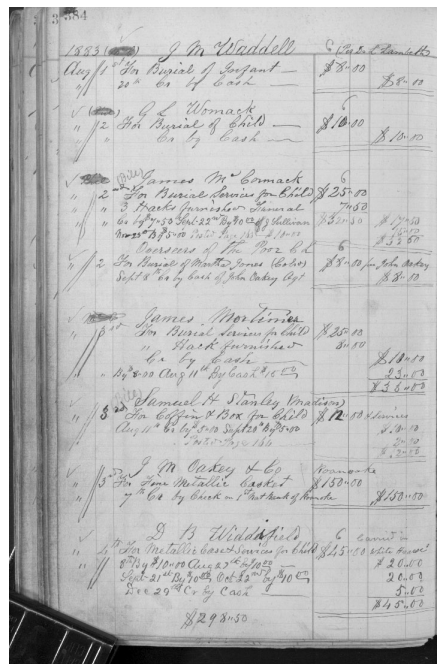 384
1883 J M Waddell 6 (Per Lambeth
Aug 1st For Burial of Infant — $8.00
" 20th Cr by Cash — $8.00
G L Womack 6
" 2 For Burial of Child — $10.00
" " Cr by Cash — $10.00
(Bill) James McCormack 6
" 2nd For Burial Services for Child $25.00
" 3 Hacks furnished Funeral 7.50
Cr by $7.50 Sept 22nd By Sullivan $32.50 $17.50
Nov 23rd By 5.00 Posted Page $10.00
$32.50
Overseers of the Poor 6
" 2 For Burial of Martha Jones (Cold) $8.00 John Oakey
Sept 8th Cr by Cash of John Oakey Agt $8.00
James Mortimer
" 3rd For Burial Services for Child $25.00
" " Hack furnished
Cr by Cash — $10.00
" By $3.00 Aug 11th By Cash $10.00 23.00
$36.00
(Bill) Samuel H Stanley (Madison)
" 3rd For Coffin & Box for Child $12.00 & Services
Aug 11th Cr by $5.00 Sept 20th By $5.00
Posted Page 164
J M Oakey & Co Roanoke
" 5th For Fine Metallic Casket $150.00
" 7th Cr by Check on 1st Nat Bank of Roanoke $150.00
D B Widdifield 6
" 4th For Metallic Case & Services for Child $45.00 White Hearse
8th By $10.00 Aug 27th by $10.00 $20.00
Sept 21st By $10.00 Oct 22nd by $10.00 20.00
Dec 29th Cr by Cash 5.00
$45.00
$298.50